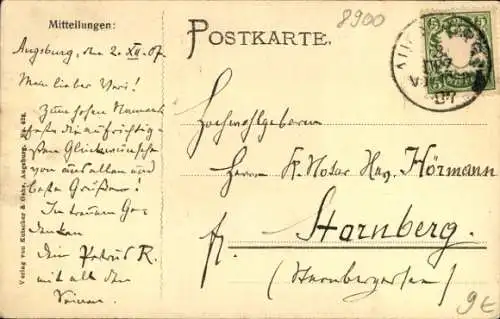 Mitteilungen:
Augsburg, den 2. XII. 07.
Mein lieber
Zum hohen Namens-
feste die aufrichtig-
sten Glückwünsche
von uns allen und
beste Grüsse!
In treuem Ge-
denken
Dein R.
mit all den
Verlag von Kutscher & Gehr, Augsburg.
POSTKARTE.
8900
5
5
Hochwohlgeboren
Herrn K. Notar Hörmann
Starnberg.
9€